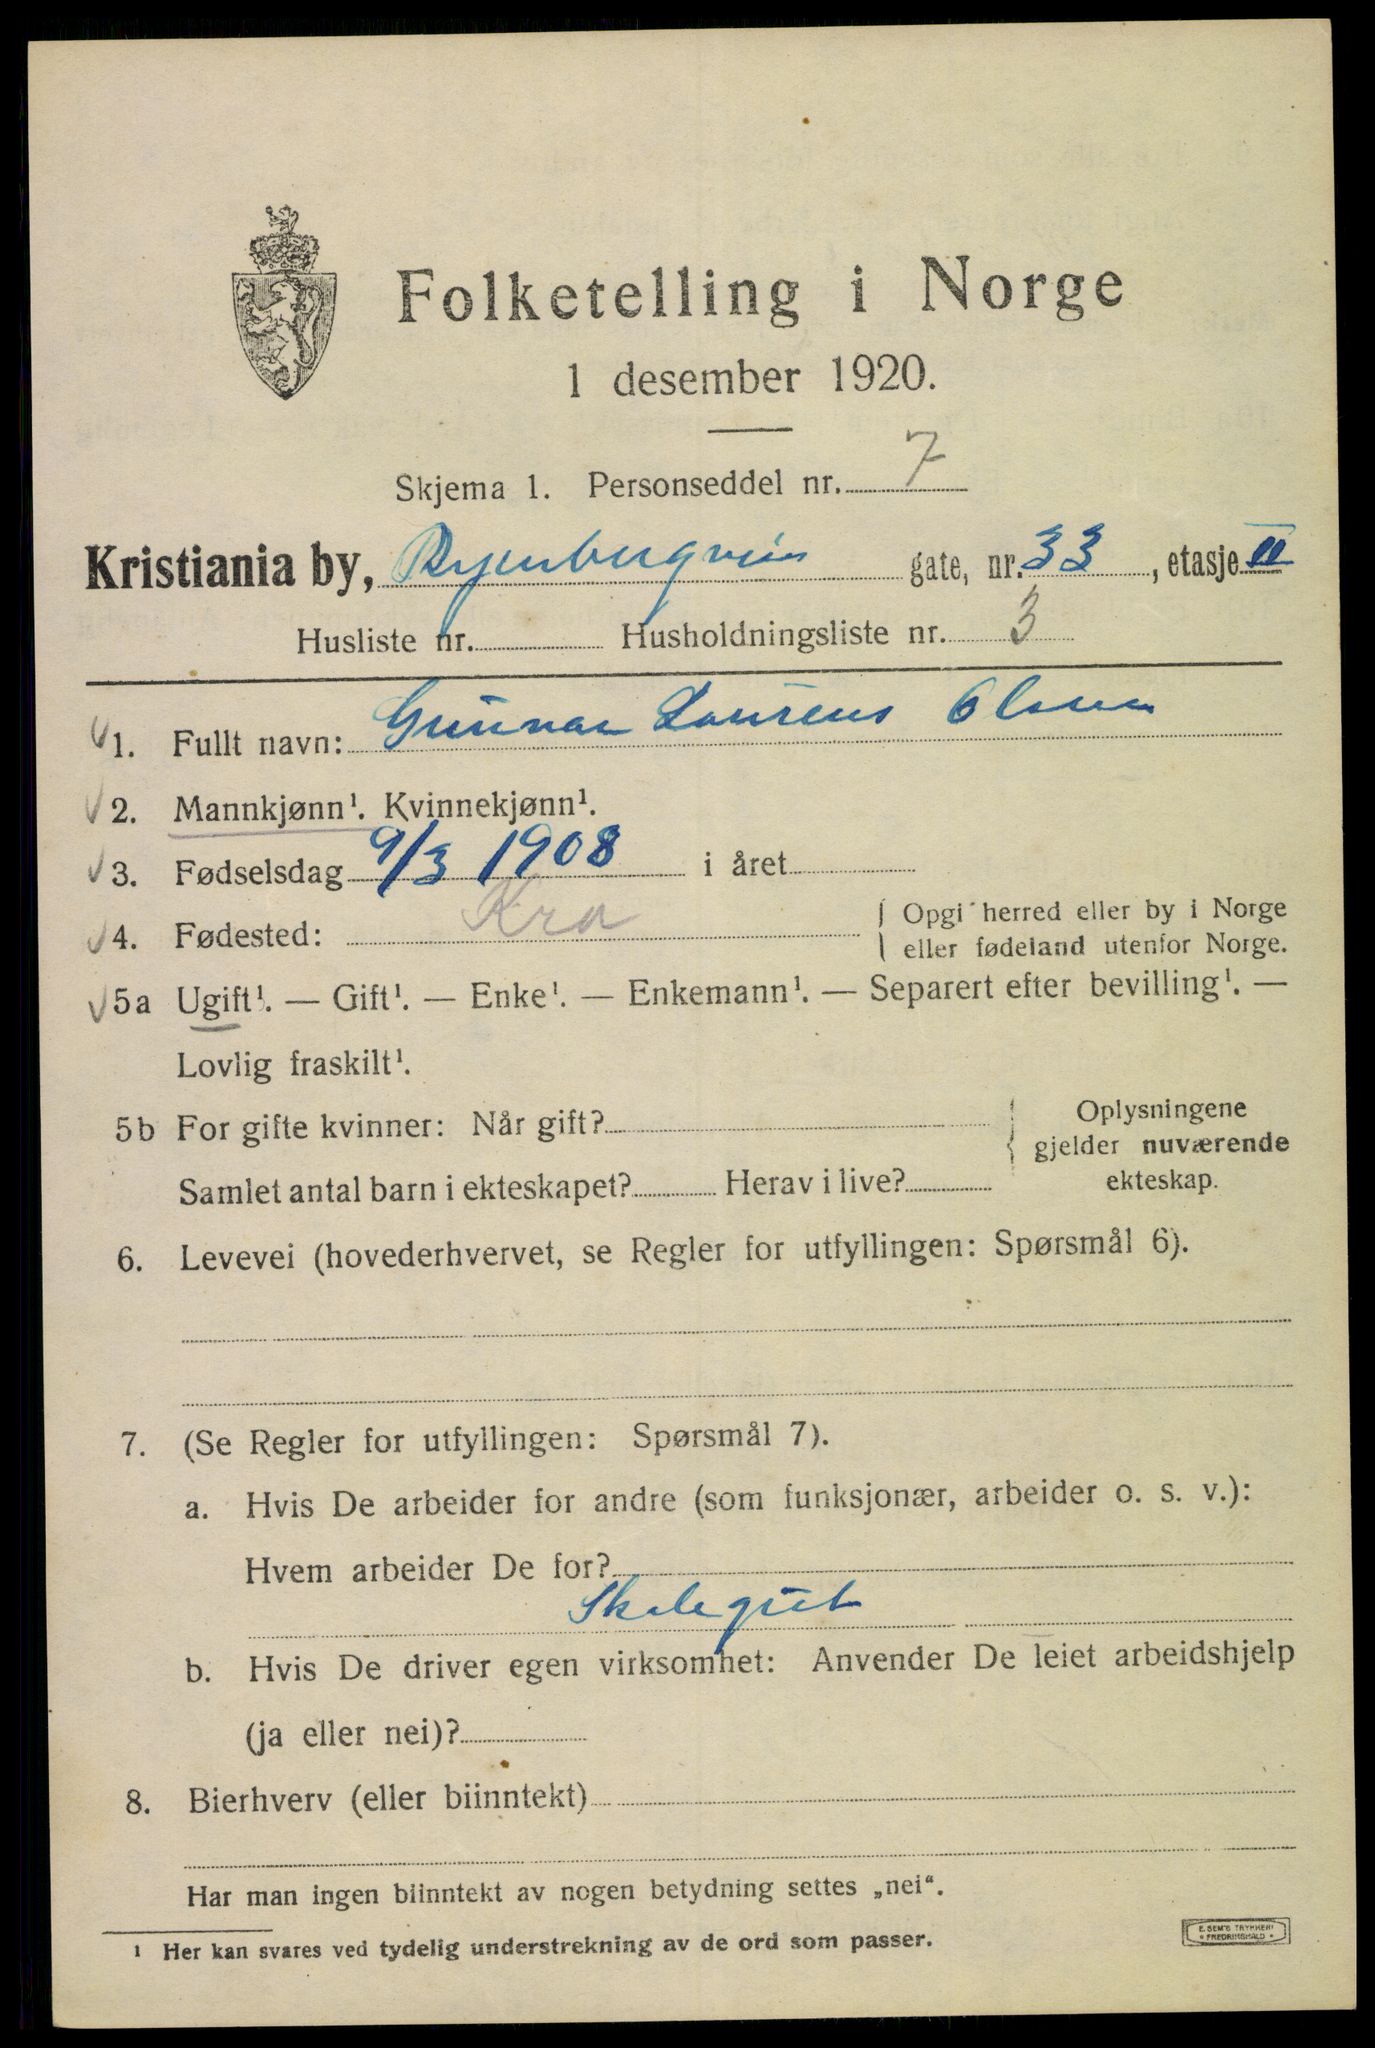 Folketelling i Norge
1 desember 1920.
Skjema 1. Personseddel nr. 7
Kristiania by, Ryenbergveien gate, nr. 33, etasje II
Husliste nr. Husholdningsliste nr. 3
1. Fullt navn: Gunnar Laurens Olsen
2. Mannkjønn¹. Kvinnekjønn¹.
3. Fødselsdag 9/3 1908 i året
4. Fødested: Kra { Opgi herred eller by i Norge
eller fødeland utenfor Norge.
5a Ugift¹. — Gift¹. — Enke¹. — Enkemann¹. — Separert efter bevilling¹. —
Lovlig fraskilt¹.
5b For gifte kvinner: Når gift? { Oplysningene
gjelder nuværende
Samlet antal barn i ekteskapet? Herav i live? ekteskap.
6. Levevei (hovederhvervet, se Regler for utfyllingen: Spørsmål 6).
7. (Se Regler for utfyllingen: Spørsmål 7).
a. Hvis De arbeider for andre (som funksjonær, arbeider o. s. v.):
Hvem arbeider De for?
Skolegut
b. Hvis De driver egen virksomhet: Anvender De leiet arbeidshjelp
(ja eller nei)?
8. Bierhverv (eller biinntekt)
Har man ingen biinntekt av nogen betydning settes „nei“.
¹ Her kan svares ved tydelig understrekning av de ord som passer.
E. SEM'S TRYKKERI
• FREDRIKSHALD •